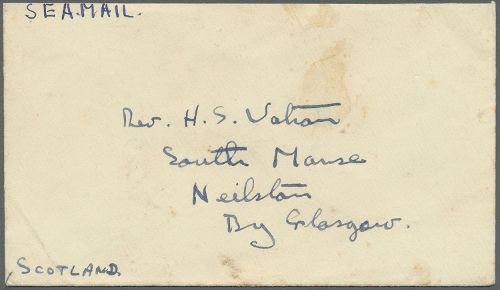 SEA.MAIL.
Rev. H. S. Watson
South Manse
Neilston
By Glasgow.
SCOTLAND.